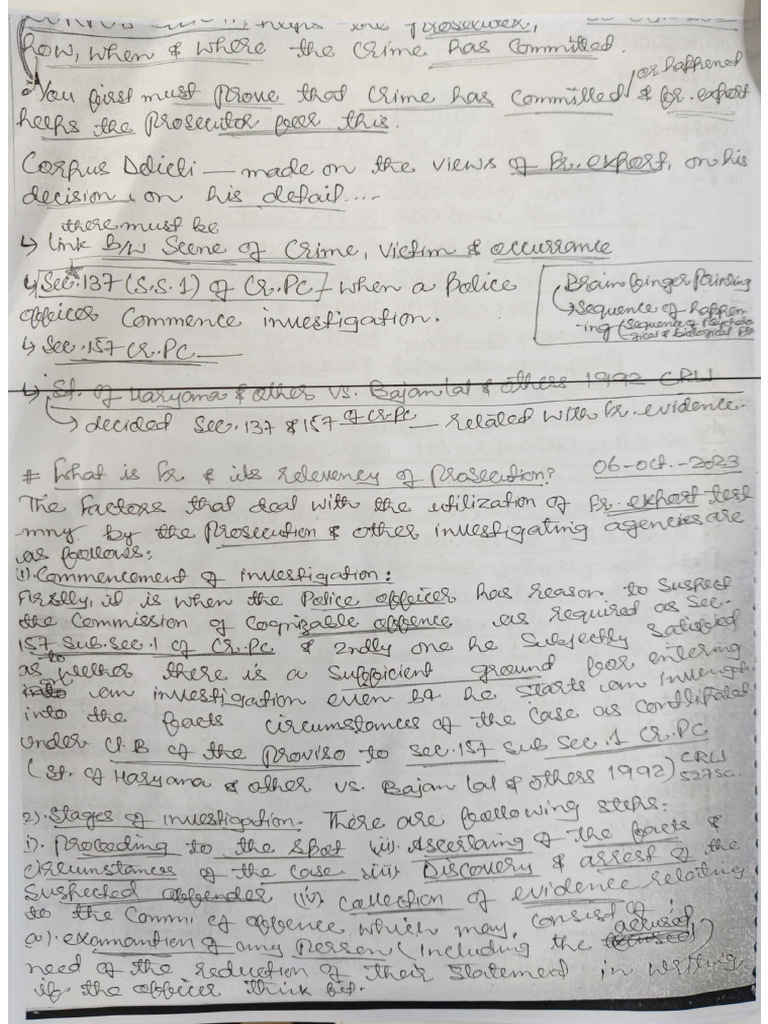 Corpus Delicti helps the prosecuter,
how, when & where the crime has committed.
You first must prove that crime has committed or happened & for. expert
helps the prosecutor for this.
Corpus Delicti — made on the views of for. expert, on his
decision, on his detail....
there must be
↳ link b/w Scene of Crime, victim & occurrance
↳ Sec. 137 (S.S.1) of Cr.PC — when a Police
officer commence investigation.
Brain finger Prinsing
↳ sequence of happen
-ing (sequence of
↳ Sec. 157 Cr.PC —
↳ St. of Haryana & other vs. Bajan lal & others 1992 CRLJ
↳ decided Sec. 137 & 157 of Cr.PC — related with for. evidence.
# What is for. & its relevency of Prosecution? 06-oct.-2023
The factors that deal with the utilization of for. expert test
-mny by the Prosecution & other investigating agencies are
as follows:
(1). Commencement of investigation:
Firstly, it is when the Police officer has reason to suspect
the commission of cognizable offence as required as Sec.
157 Sub.sec.1 of Cr.PC & 2ndly one he subjectly satisfied
as to wether there is a sufficient ground for entering
into an investigation even bg he starts an investigati
into the facts circumstances of the case as
under Cl.B of the proviso to Sec.157 Sub Sec.1 Cr.PC
(St. of Haryana & other vs. Bajan lal & others 1992) CRLJ
527 SC.
2). Stages of investigation. There are following steps:
i). Proceding to the spot (ii). Ascertaing of the facts &
circumstances of the case (iii) Discovery & arrest of the
suspected offender (iv) collection of evidence relating
to the Comm. of offence which may, consist of :
(a). examnantion of any Person (including the accused)
need of the reduction of their statement in writing
if the officer think fit.